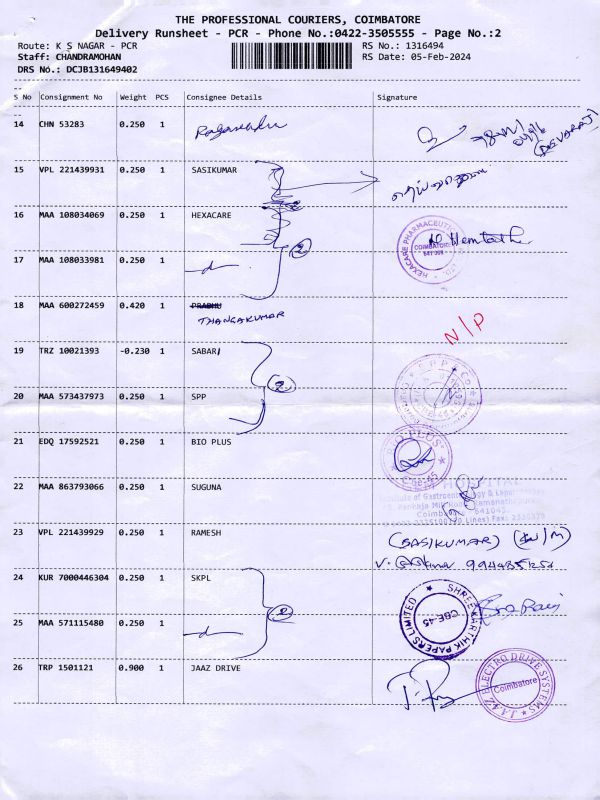 THE PROFESSIONAL COURIERS, COIMBATORE
Delivery Runsheet - PCR - Phone No.:0422-3505555 - Page No.:2
Route: K S NAGAR - PCR
RS No.: 1316494
Staff: CHANDRAMOHAN
RS Date: 05-Feb-2024
DRS No.: DCJB131649402
S No Consignment No Weight PCS Consignee Details Signature
14 CHN 53283 0.250 1
(DEVARAJ)
15 VPL 221439931 0.250 1 SASIKUMAR
16 MAA 108034069 0.250 1 HEXACARE
HEXACARE PHARMACEUTIC
COIMBATORE
2
17 MAA 108033981 0.250 1 -d-
18 MAA 600272459 0.420 1 PRABHU
THANGAKUMAR
N/P
19 TRZ 10021393 -0.230 1 SABARI
2
20 MAA 573437973 0.250 1 SPP
21 EDQ 17592521 0.250 1 BIO PLUS
BIO PLUS
CBE-45
22 MAA 863793066 0.250 1 SUGUNA
HOSPITAL
Institute of Gastroenterology &
23 VPL 221439929 0.250 1 RAMESH (SASIKUMAR)
24 KUR 7000446304 0.250 1 SKPL
2
SHREE KARTHIK PAPERS LIMITED
CBE-45
25 MAA 571115480 0.250 1 -d-
26 TRP 1501121 0.900 1 JAAZ DRIVE
JAAZ ELECTRO DRIVE SYSTEMS
Coimbatore